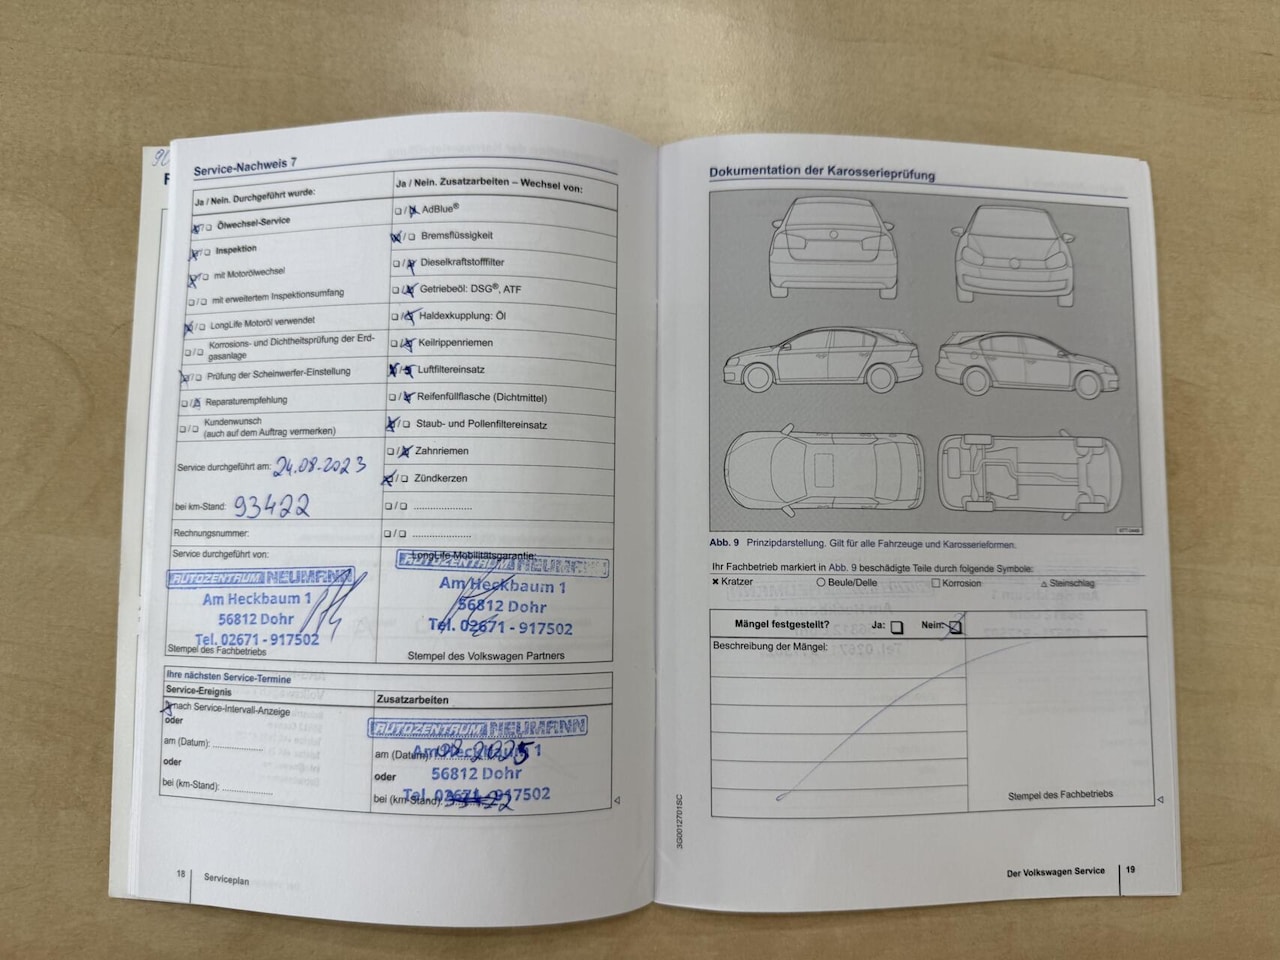 Service-Nachweis 7
Ja / Nein. Durchgeführt wurde:
☒/☐ Ölwechsel-Service
☒/☐ Inspektion
☒/☐ mit Motorölwechsel
☐/☐ mit erweitertem Inspektionsumfang
☒/☐ LongLife Motoröl verwendet
☐/☐ Korrosions- und Dichtheitsprüfung der Erd-
gasanlage
☒/☐ Prüfung der Scheinwerfer-Einstellung
☐/☒ Reparaturempfehlung
☐/☐ Kundenwunsch
(auch auf dem Auftrag vermerken)
Service durchgeführt am: 24.08.2023
bei km-Stand: 93422
Rechnungsnummer:
Service durchgeführt von:
AUTOZENTRUM NEUMANN
Am Heckbaum 1
56812 Dohr
Tel. 02671 - 917502
Stempel des Fachbetriebs
Ja / Nein. Zusatzarbeiten – Wechsel von:
☐/☒ AdBlue®
☒/☐ Bremsflüssigkeit
☐/☒ Dieselkraftstofffilter
☐/☒ Getriebeöl: DSG®, ATF
☐/☒ Haldexkupplung: Öl
☐/☒ Keilrippenriemen
☒/☒ Luftfiltereinsatz
☐/☒ Reifenfüllflasche (Dichtmittel)
☒/☐ Staub- und Pollenfiltereinsatz
☐/☒ Zahnriemen
☒/☐ Zündkerzen
☐/☐ ......................
☐/☐ ......................
LongLife-Mobilitätsgarantie:
AUTOZENTRUM NEUMANN
Am Heckbaum 1
56812 Dohr
Tel. 02671 - 917502
Stempel des Volkswagen Partners
Ihre nächsten Service-Termine
Service-Ereignis
☒ nach Service-Intervall-Anzeige
oder
am (Datum): ..................
oder
bei (km-Stand): ..................
Zusatzarbeiten
AUTOZENTRUM NEUMANN
Am Heckbaum 1
am (Datum): 2025
56812 Dohr
oder
Tel. 02671 - 917502
bei (km-Stand):
18 Serviceplan
Dokumentation der Karosserieprüfung
Abb. 9 Prinzipdarstellung. Gilt für alle Fahrzeuge und Karosserieformen.
Ihr Fachbetrieb markiert in Abb. 9 beschädigte Teile durch folgende Symbole:
✖ Kratzer ○ Beule/Delle ☐ Korrosion △ Steinschlag
Mängel festgestellt? Ja: ☐ Nein: ☒
Beschreibung der Mängel:
Stempel des Fachbetriebs
3G0012701SC
Der Volkswagen Service 19